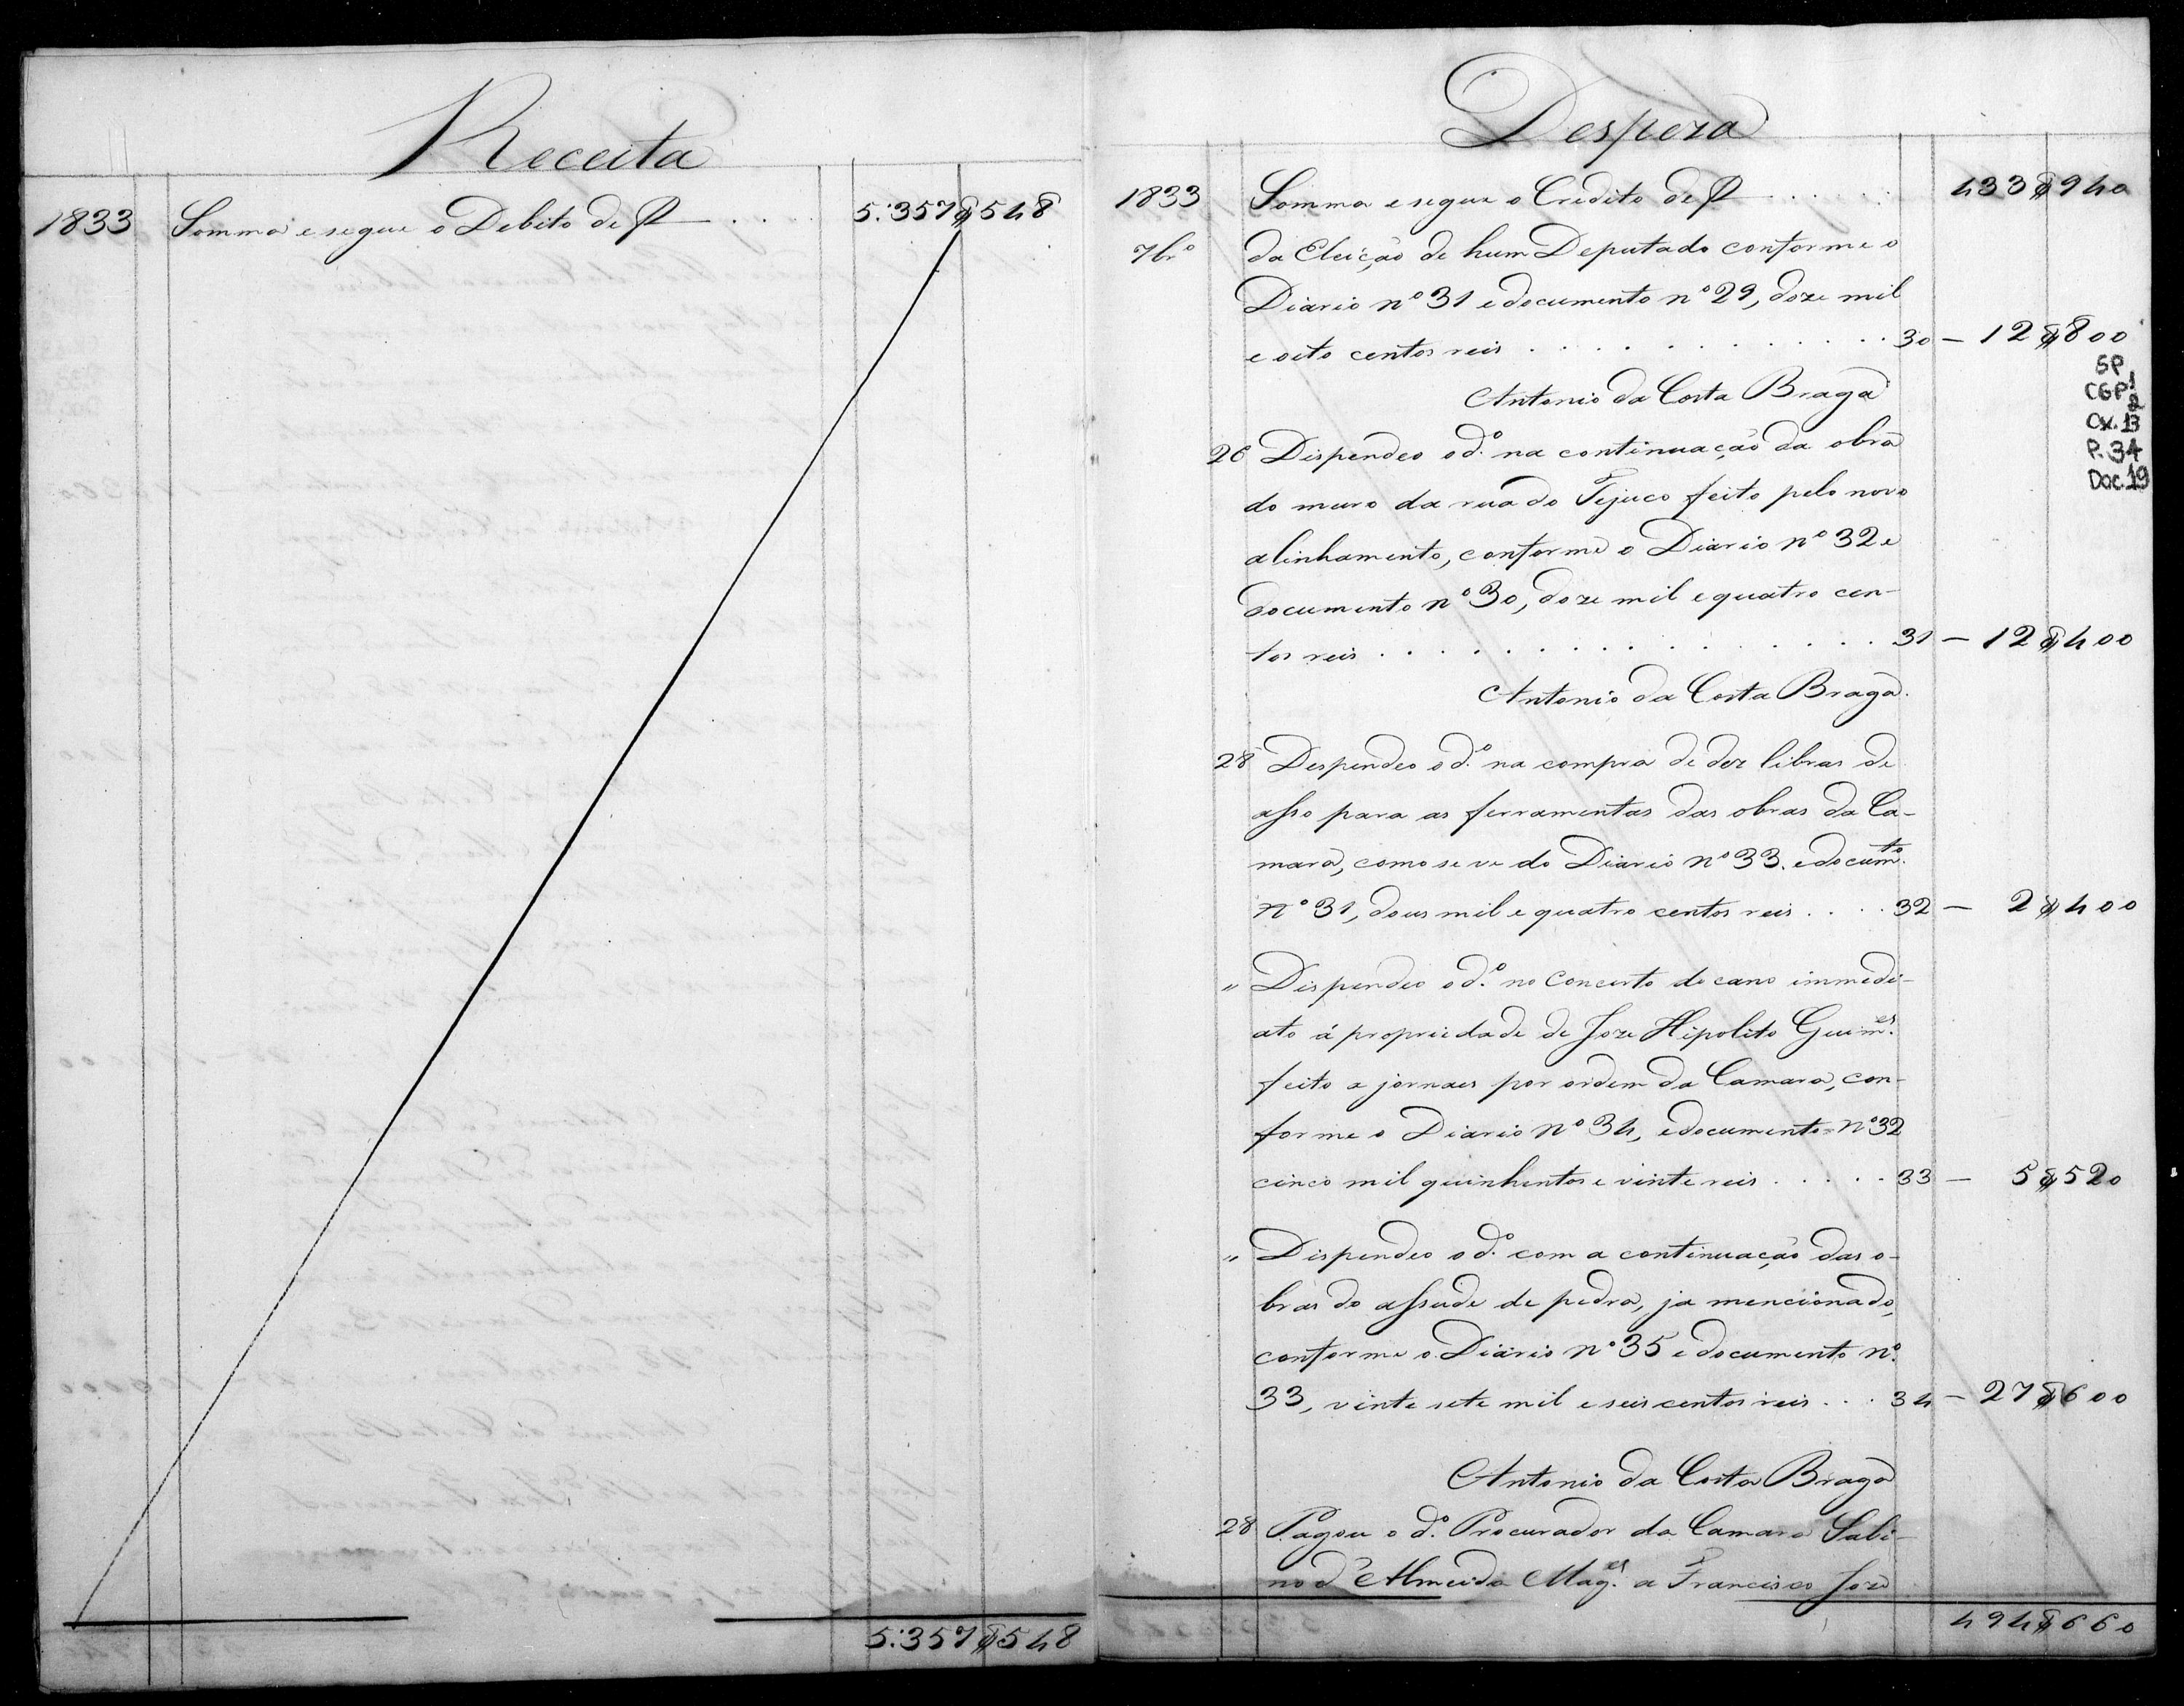 Receita
1833 Somma e segue o Debito de R . . . . 5:357$548
5:357$548
Despeza
1833 Somma e segue o Credito de R . . . . . . 433$940
7br.o da Eleição de hum Deputado conforme o
Diario nº 31 e documento nº 29, doze mil
e oito centos reis . . . . . . . . . . . . 30 — 12$800
SP
CGP 1
2
Cx. 13
P. 34
Doc. 19
Antonio da Costa Braga
26 Dispendeo o d.o na continuação da obra
do muro da rua do Tejuco feito pelo novo
alinhamento, conforme o Diario nº 32 e
documento nº 30, doze mil e quatro cen-
tos reis . . . . . . . . . . . . . . . . 31 — 12$400
Antonio da Costa Braga.
28 Despendeo o d.o na compra de dez libras de
asso para as ferramentas das obras da Ca-
mara, como se ve do Diario nº 33. e docum.to
nº 31, dous mil e quatro centos reis . . . . 32 — 2$400
" Dispendeo o d.o no Concerto do cano immedi-
ato á propriedade de Joze Hipolito Guim.es
feito a jornaes por ordem da Camara, con-
forme o Diario nº 34, e documento nº 32
cinco mil quinhentos e vinte reis . . . . . 33 — 5$520
" Dispendeo o d.o com a continuação das o-
bras do assude de pedra, ja mencionado,
conforme o Diario nº 35 e documento nº.
33, vinte sete mil e seis centos reis . . . 34 — 27$600
Antonio da Costa Braga
28 Pagou o d.o Procurador da Camara Sabi-
no d'Almeida Mag.es a Francisco Joze
494$660